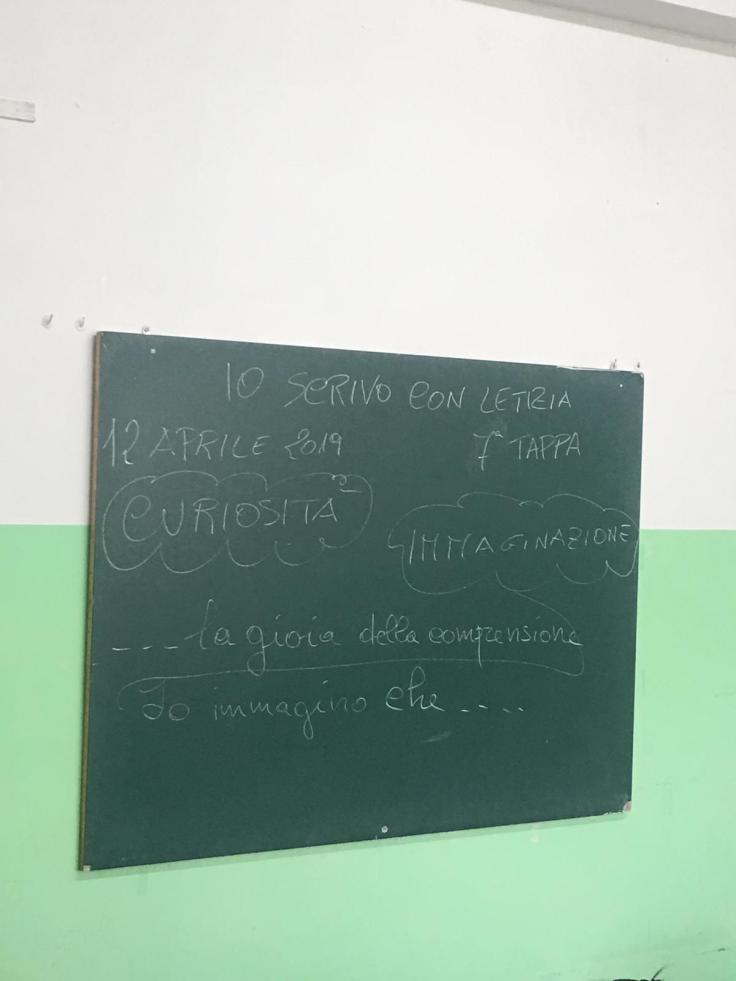 IO SCRIVO CON LETIZIA
12 APRILE 2019 7ª TAPPA
CURIOSITÀ IMMAGINAZIONE
.... la gioia della comprensione
Io immagino che ....